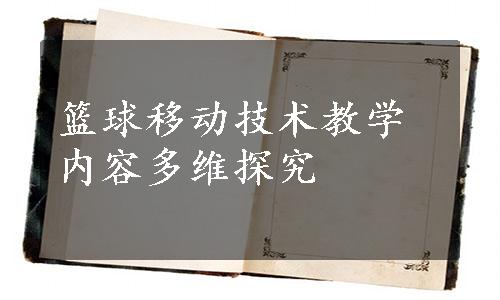 篮球移动技术教学
内容多维探究